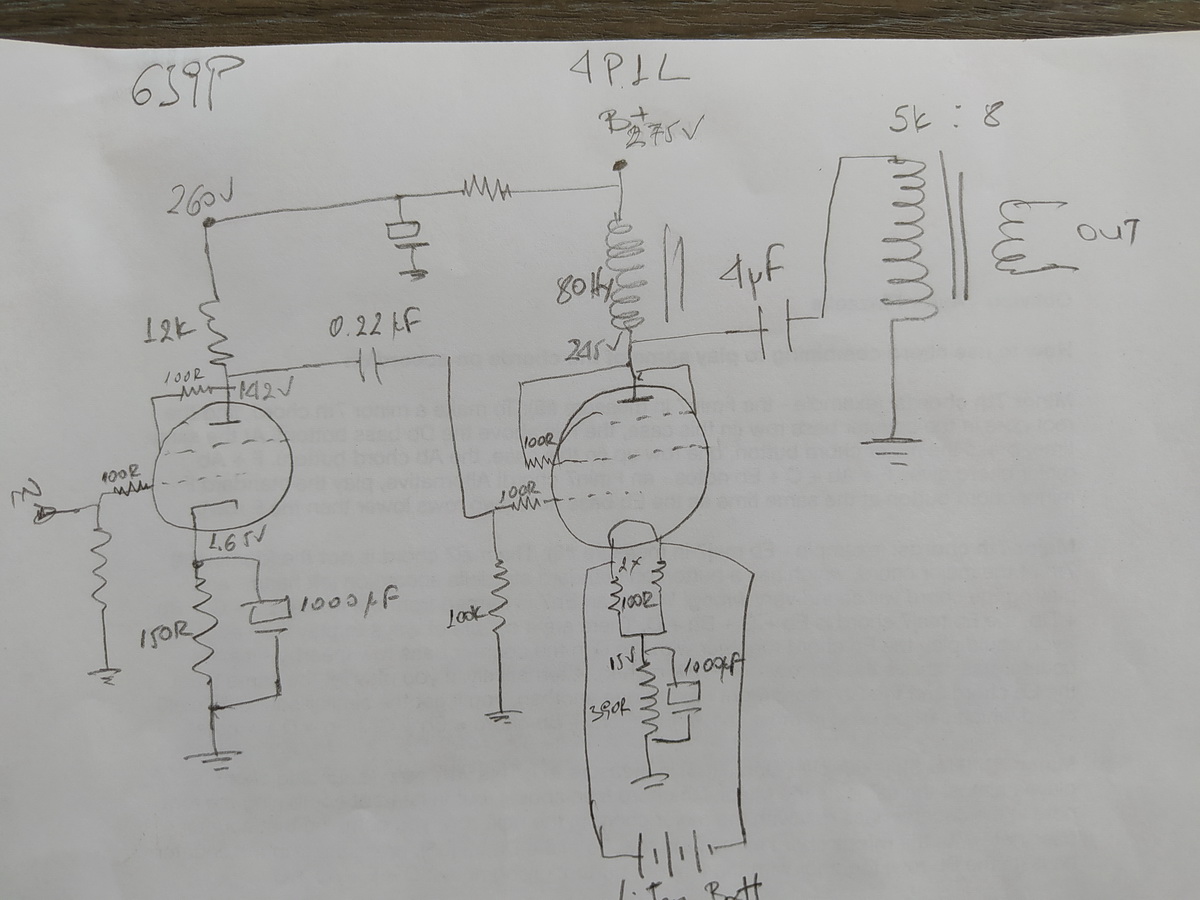 6J9P
4P1L
B+
275V
5k : 8
260V
OUT
80Hy
4µF
12k
0.22µF
245V
100R
142V
100R
100R
100R
1.65V
2x
100R
1000µF
150R
100k
15V
1000µF
390R